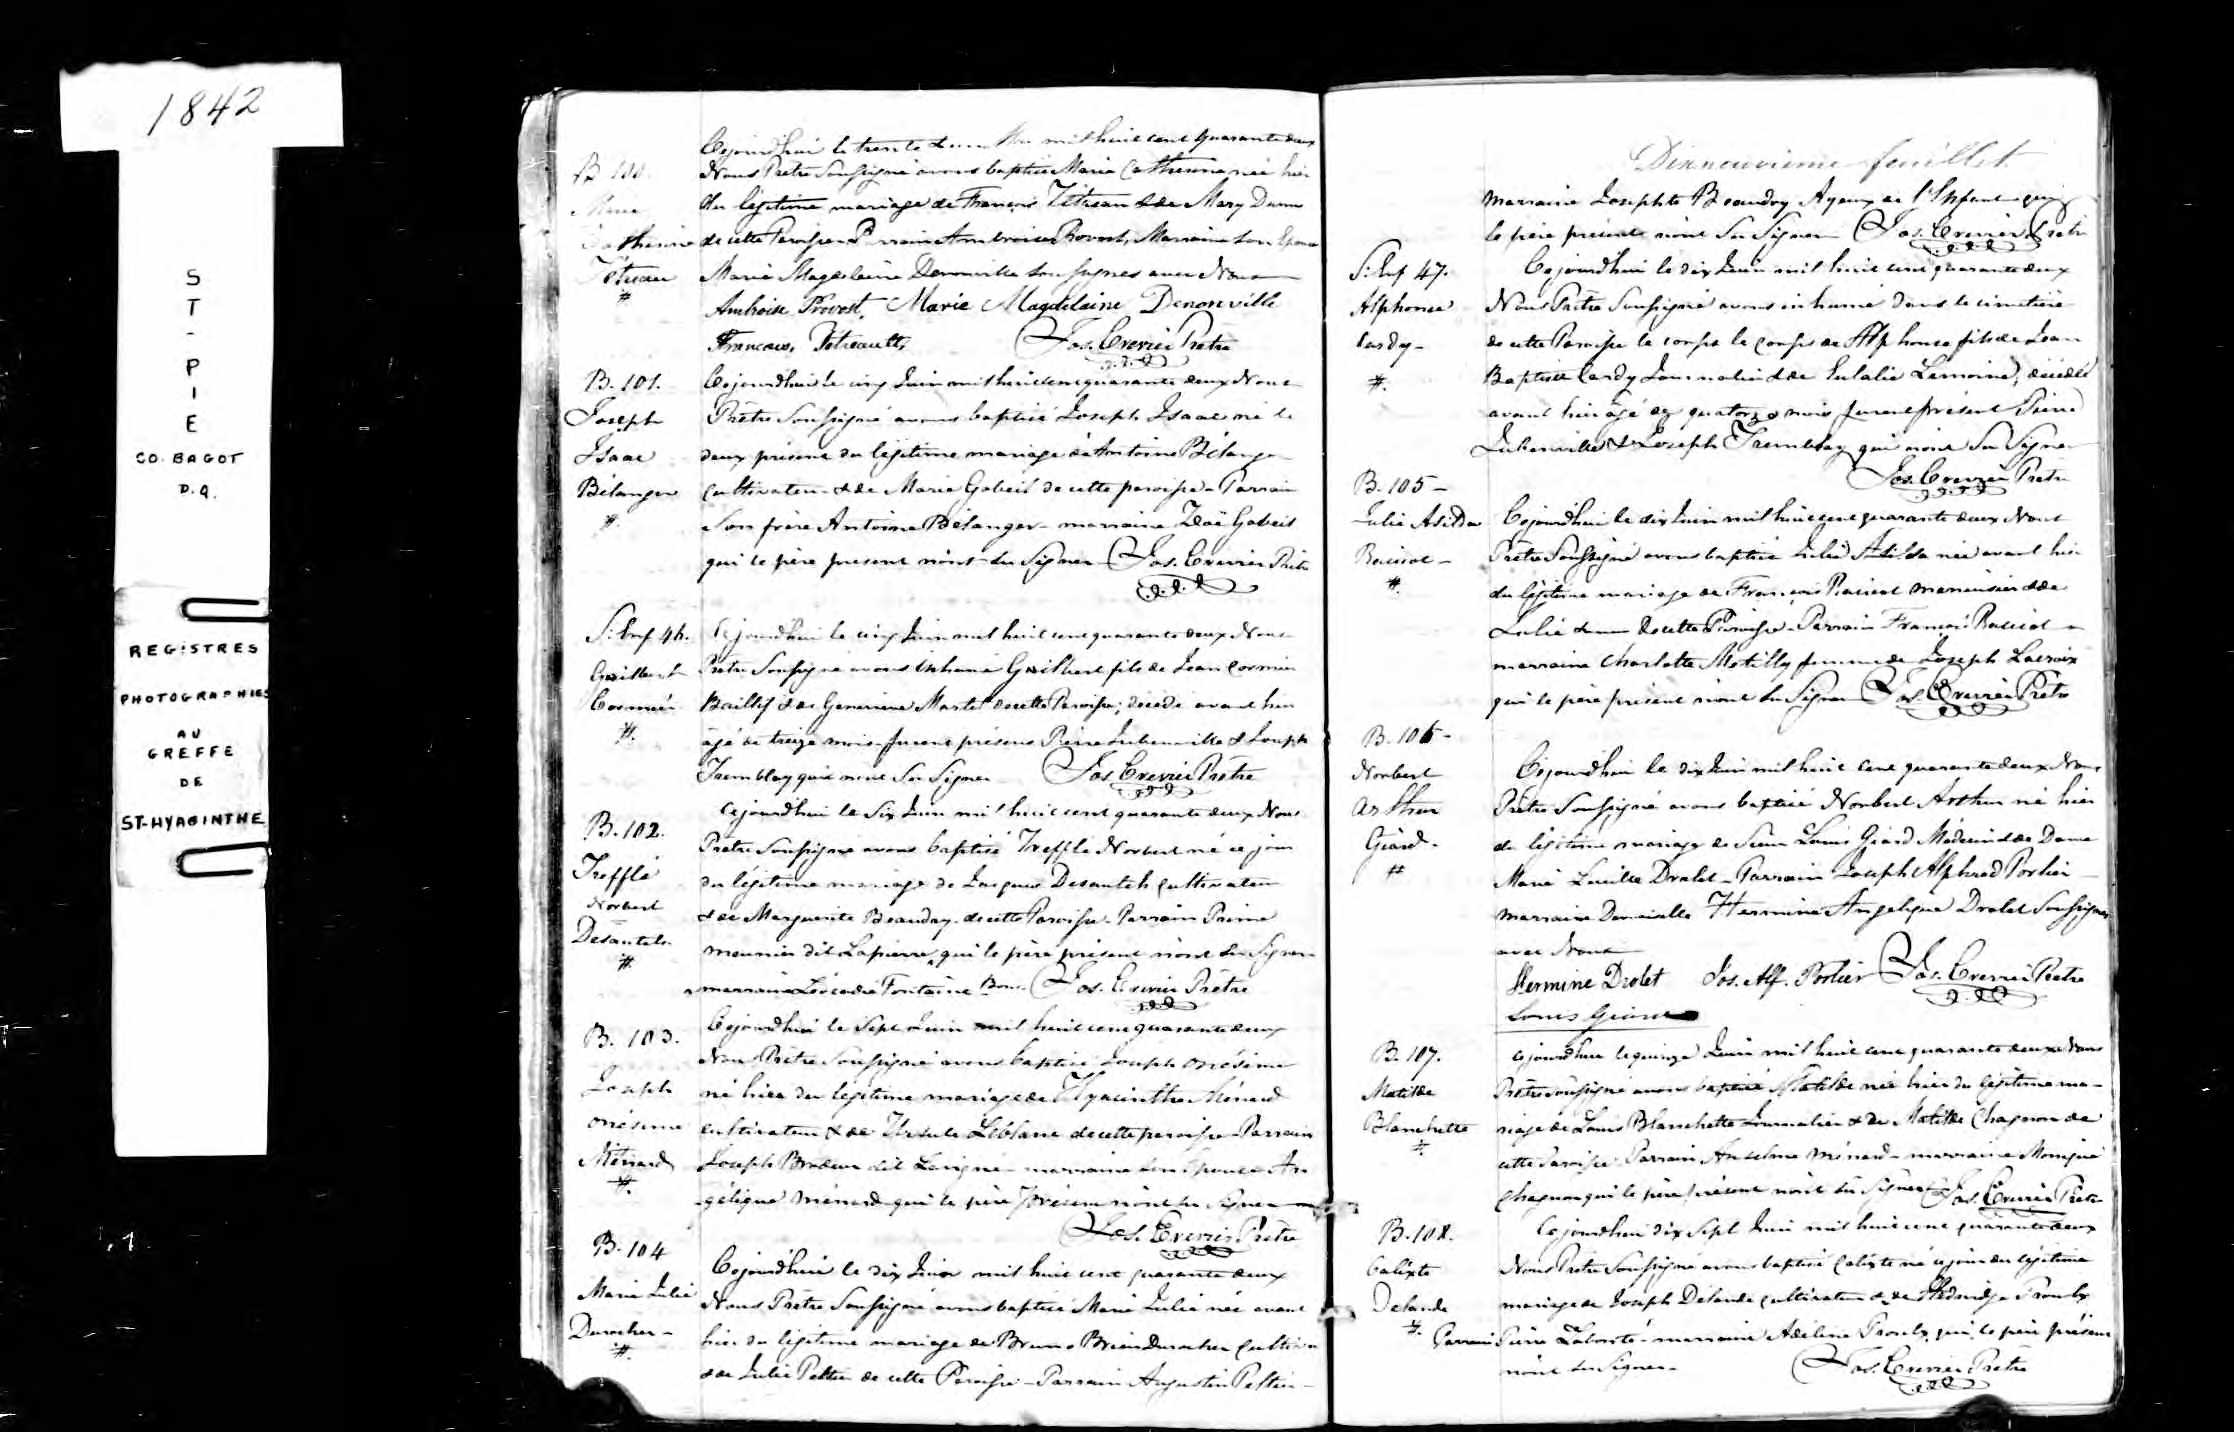 1842
S
T
-
P
I
E
CO. BAGOT
P.Q.
REGISTRES
PHOTOGRAPHIES
AU
GREFFE
DE
ST-HYACINTHE
B. 100.
Marie
Catherine
Tétreau
#
Cejourdhui le trente & un Mai mil huit cent quarante deux
Nous Prêtre Soussigné avons baptisé Marie Catherine née hier
du légitime mariage de François Tétreau & de Mary Dunn
de cette Paroisse Parrain Ambroise Provost, Marraine son Epouse
Marie Magdeleine Denonville soussignés avec Nous
Ambroise Provost, Marie Magdelaine Denonville
Francois Tétreault, Jos. Crevier Prêtre
B. 101.
Joseph
Isaac
Bélanger
#
Cejourdhui le cinq Juin mil huit cent quarante deux Nous
Prêtre Soussigné avons baptisé Joseph Isaac né le
deux présent du légitime mariage de Antoine Bélanger
Cultivateur & de Marie Gobeil de cette paroisse - Parrain
Son frère Antoine Bélanger - marraine Zoë Gobeil
qui le père présent n'ont su signer Jos. Crevier Prêtre
S. Enf 46.
Guilbert
Cormier
#
Cejourdhui le cinq Juin mil huit cent quarante deux Nous
Prêtre Soussigné avons inhumé Guilbert fils de Jean Cormier
Baillif & de Genevieve Martel de cette Paroisse; décédé avant hier
âgé de treize mois furent présens Pierre Jubinville & Joseph
Tremblay qui n'ont su Signer Jos. Crevier Prêtre
B. 102.
Trefflé
Norbert
Desautels
#
Cejourdhui le six Juin mil huit cent quarante deux Nous
Prêtre Soussigné avons baptisé Trefflé Norbert né ce jour
du légitime mariage de Jacques Desautels Cultivateur
& de Marguerite Beaudry de cette Paroisse - Parrain Prime
meunier dit Lapierre, qui le père présent n'ont su Signer
marraine Léocadie Fontaine Bon. Jos. Crevier Prêtre
B. 103.
Joseph
onésime
Ménard
#
Cejourdhui le Sept Juin mil huit cent quarante deux
Nous Prêtre Soussigné avons baptisé Joseph onésime
né hier du légitime mariage de Hyacinthe Ménard
cultivateur & de Ursule Leblanc de cette paroisse Parrain
Joseph Brodeur dit Lavigne - marraine son Epouse An
-gélique Ménard qui le père présent n'ont su signer
Jos. Crevier Prêtre
B. 104
Marie Julie
Durocher -
#
Cejourdhui le dix Juin mil huit cent quarante deux
Nous Prêtre Soussigné avons baptisé Marie Julie née avant
hier du légitime mariage de Bruno Brien Durocher Cultiv
& de Julie Peltier de cette Paroisse - Parrain Augustin Peltier -
Dixneuvième feuillet
marraine Josephte Beaudry Ayeux de l'Enfant qui
le père présent n'ont su Signer Jos. Crevier Prêtre
S. Enf 47.
Alphonse
Cardy -
#.
Cejourdhui le dix Juin mil huit cent quarante deux
Nous Prêtre Soussigné avons inhumé dans le cimetière
de cette Paroisse le corps le corps de Alphonse fils de Jean
Baptiste Cardy Journalier & de Eulalie Lemoine, décédé
avant hier âgé de quatorze mois furent présent Pierre
Jubinville & Joseph Tremblay qui n'ont su Signer
Jos. Crevier Prêtre
B. 105 -
Julie Asilda
Racicot -
#.
Cejourdhui le dix Juin mil huit cent quarante deux Nous
Prêtre Soussigné avons baptisé Julie Asilda née avant hier
du légitime mariage de François Racicot menuisier & de
Julie de cette Paroisse - Parrain François Racicot
marraine Charlotte femme de Joseph Lacroix
qui le père présent n'ont su Signer Jos. Crevier Prêtre
B. 106 -
Norbert
Arthur
Giard -
#
Cejourdhui le dix Juin mil huit cent quarante deux Nous
Prêtre Soussigné avons baptisé Norbert Arthur né hier
du légitime mariage de Sieur Louis Giard Médecin & de Dame
Marie Lucille Drolet - Parrain Joseph Alphred Portier
marraine Demoiselle Hermine Angelique Drolet Soussignés
avec Nous
Hermine Drolet Jos. Alf. Portier Jos. Crevier Prêtre
Louis Giard
B. 107.
Matilde
Blanchette
#.
Cejourdhui le quinze Juin mil huit cent quarante deux Nous
Prêtre soussigné avons baptisé Matilde née hier du légitime ma-
riage de Louis Blanchette Journalier & de Matilde Chagnon de
cette Paroisse Parrain Anselme Ménard - marraine Monique
Chagnon qui le père présent n'ont su signer Jos. Crevier Prêtre
B. 108.
Calixte
Delande
#.
Cejourdhui dix sept Juin mil huit cent quarante deux
Nous Prêtre Soussigné avons baptisé Calixte né ce jour du légitime
mariage de Joseph Delande Cultivateur & de Hedwidge Proulx
Parrain Pierre Laborité - marraine Adéline Proulx, qui le père présent
n'ont su Signer - Jos. Crevier Prêtre